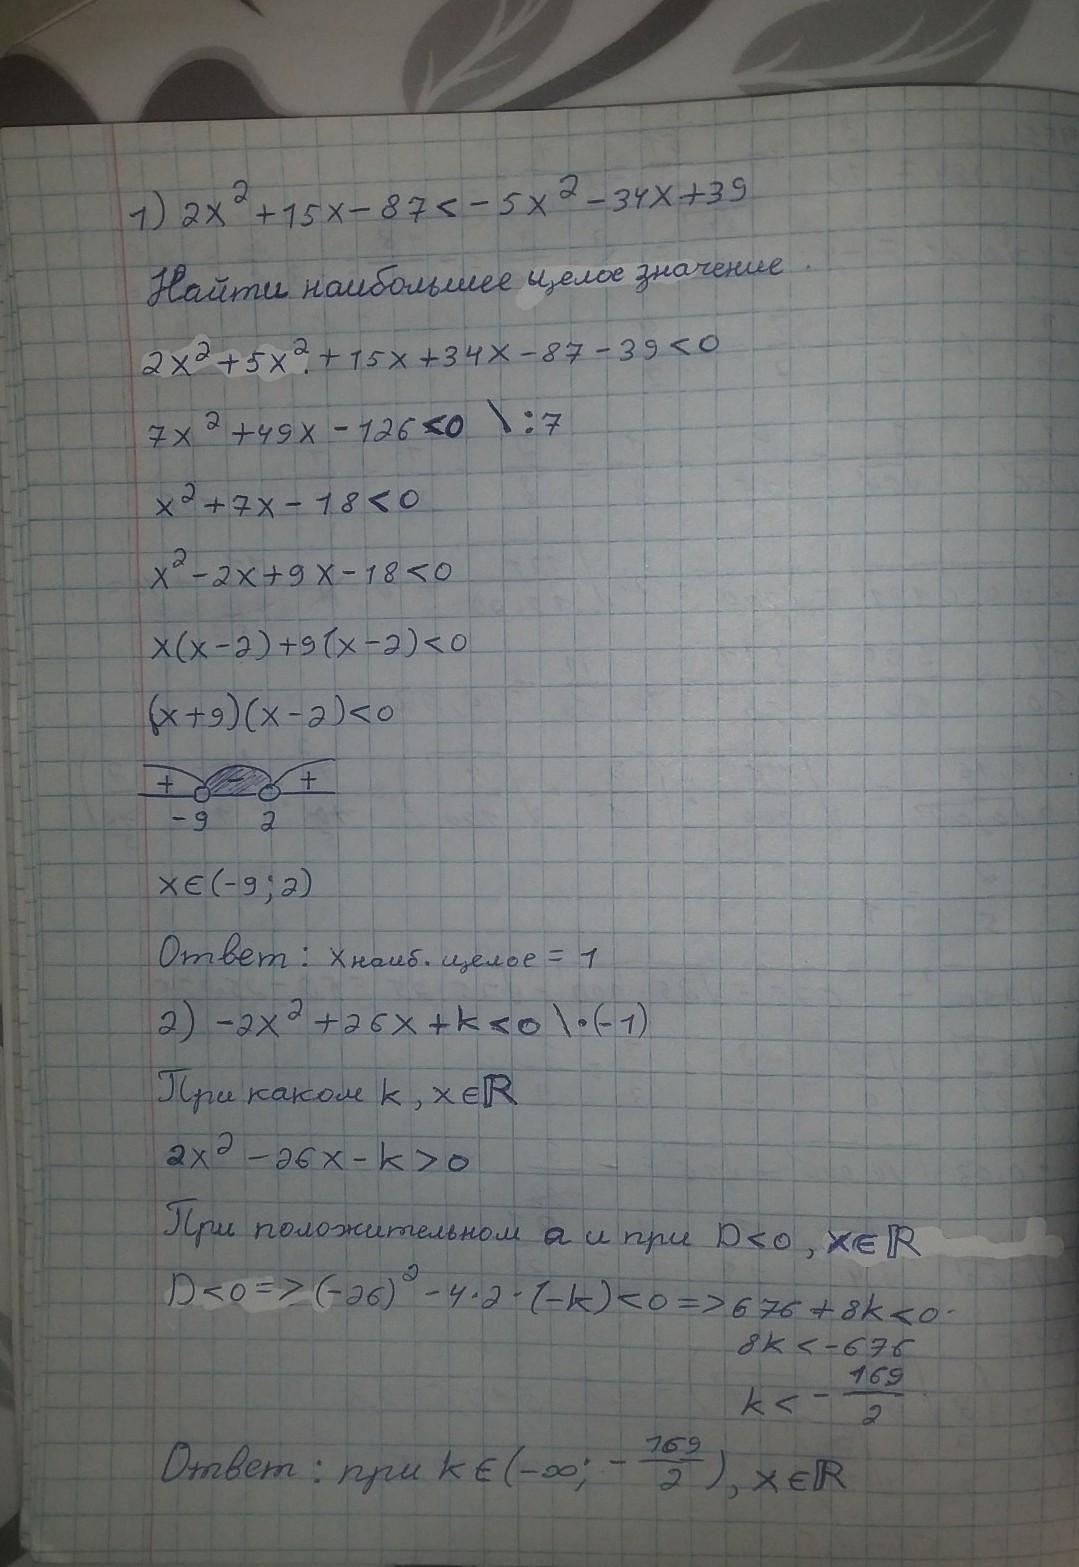 1) 2x² + 15x - 87 < - 5x² - 34x + 39
Найти наибольшее целое значение.
2x² + 5x² + 15x + 34x - 87 - 39 < 0
7x² + 49x - 126 < 0 \ :7
x² + 7x - 18 < 0
x² - 2x + 9x - 18 < 0
x(x-2) + 9(x-2) < 0
(x+9)(x-2) < 0
+ - +
-9 2
x∈(-9;2)
Ответ: x наиб. целое = 1
2) -2x² + 26x + k < 0 \ ·(-1)
При каком k, x∈ℝ
2x² - 26x - k > 0
При положительном a и при D<0, x∈ℝ
D<0 => (-26)² - 4·2·(-k) < 0 => 676 + 8k < 0
8k < -676
k < - 169/2
Ответ: при k∈(-∞; - 169/2), x∈ℝ